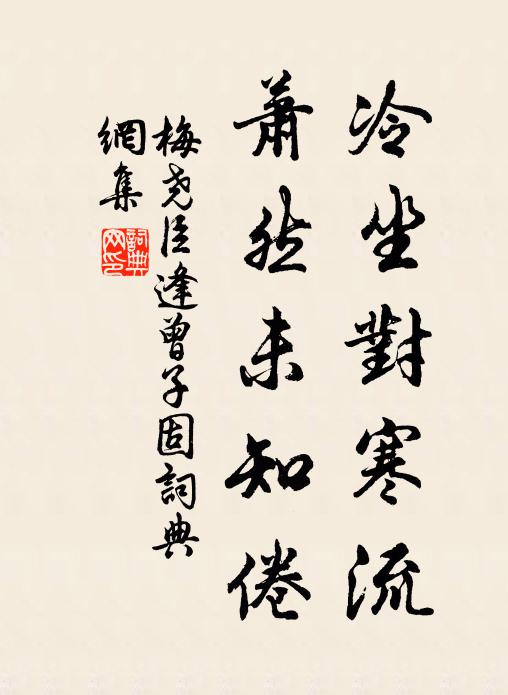 冷坐對寒流
蕭然未知倦
梅尧臣逢曾子固詞典
網集
詞典
网印